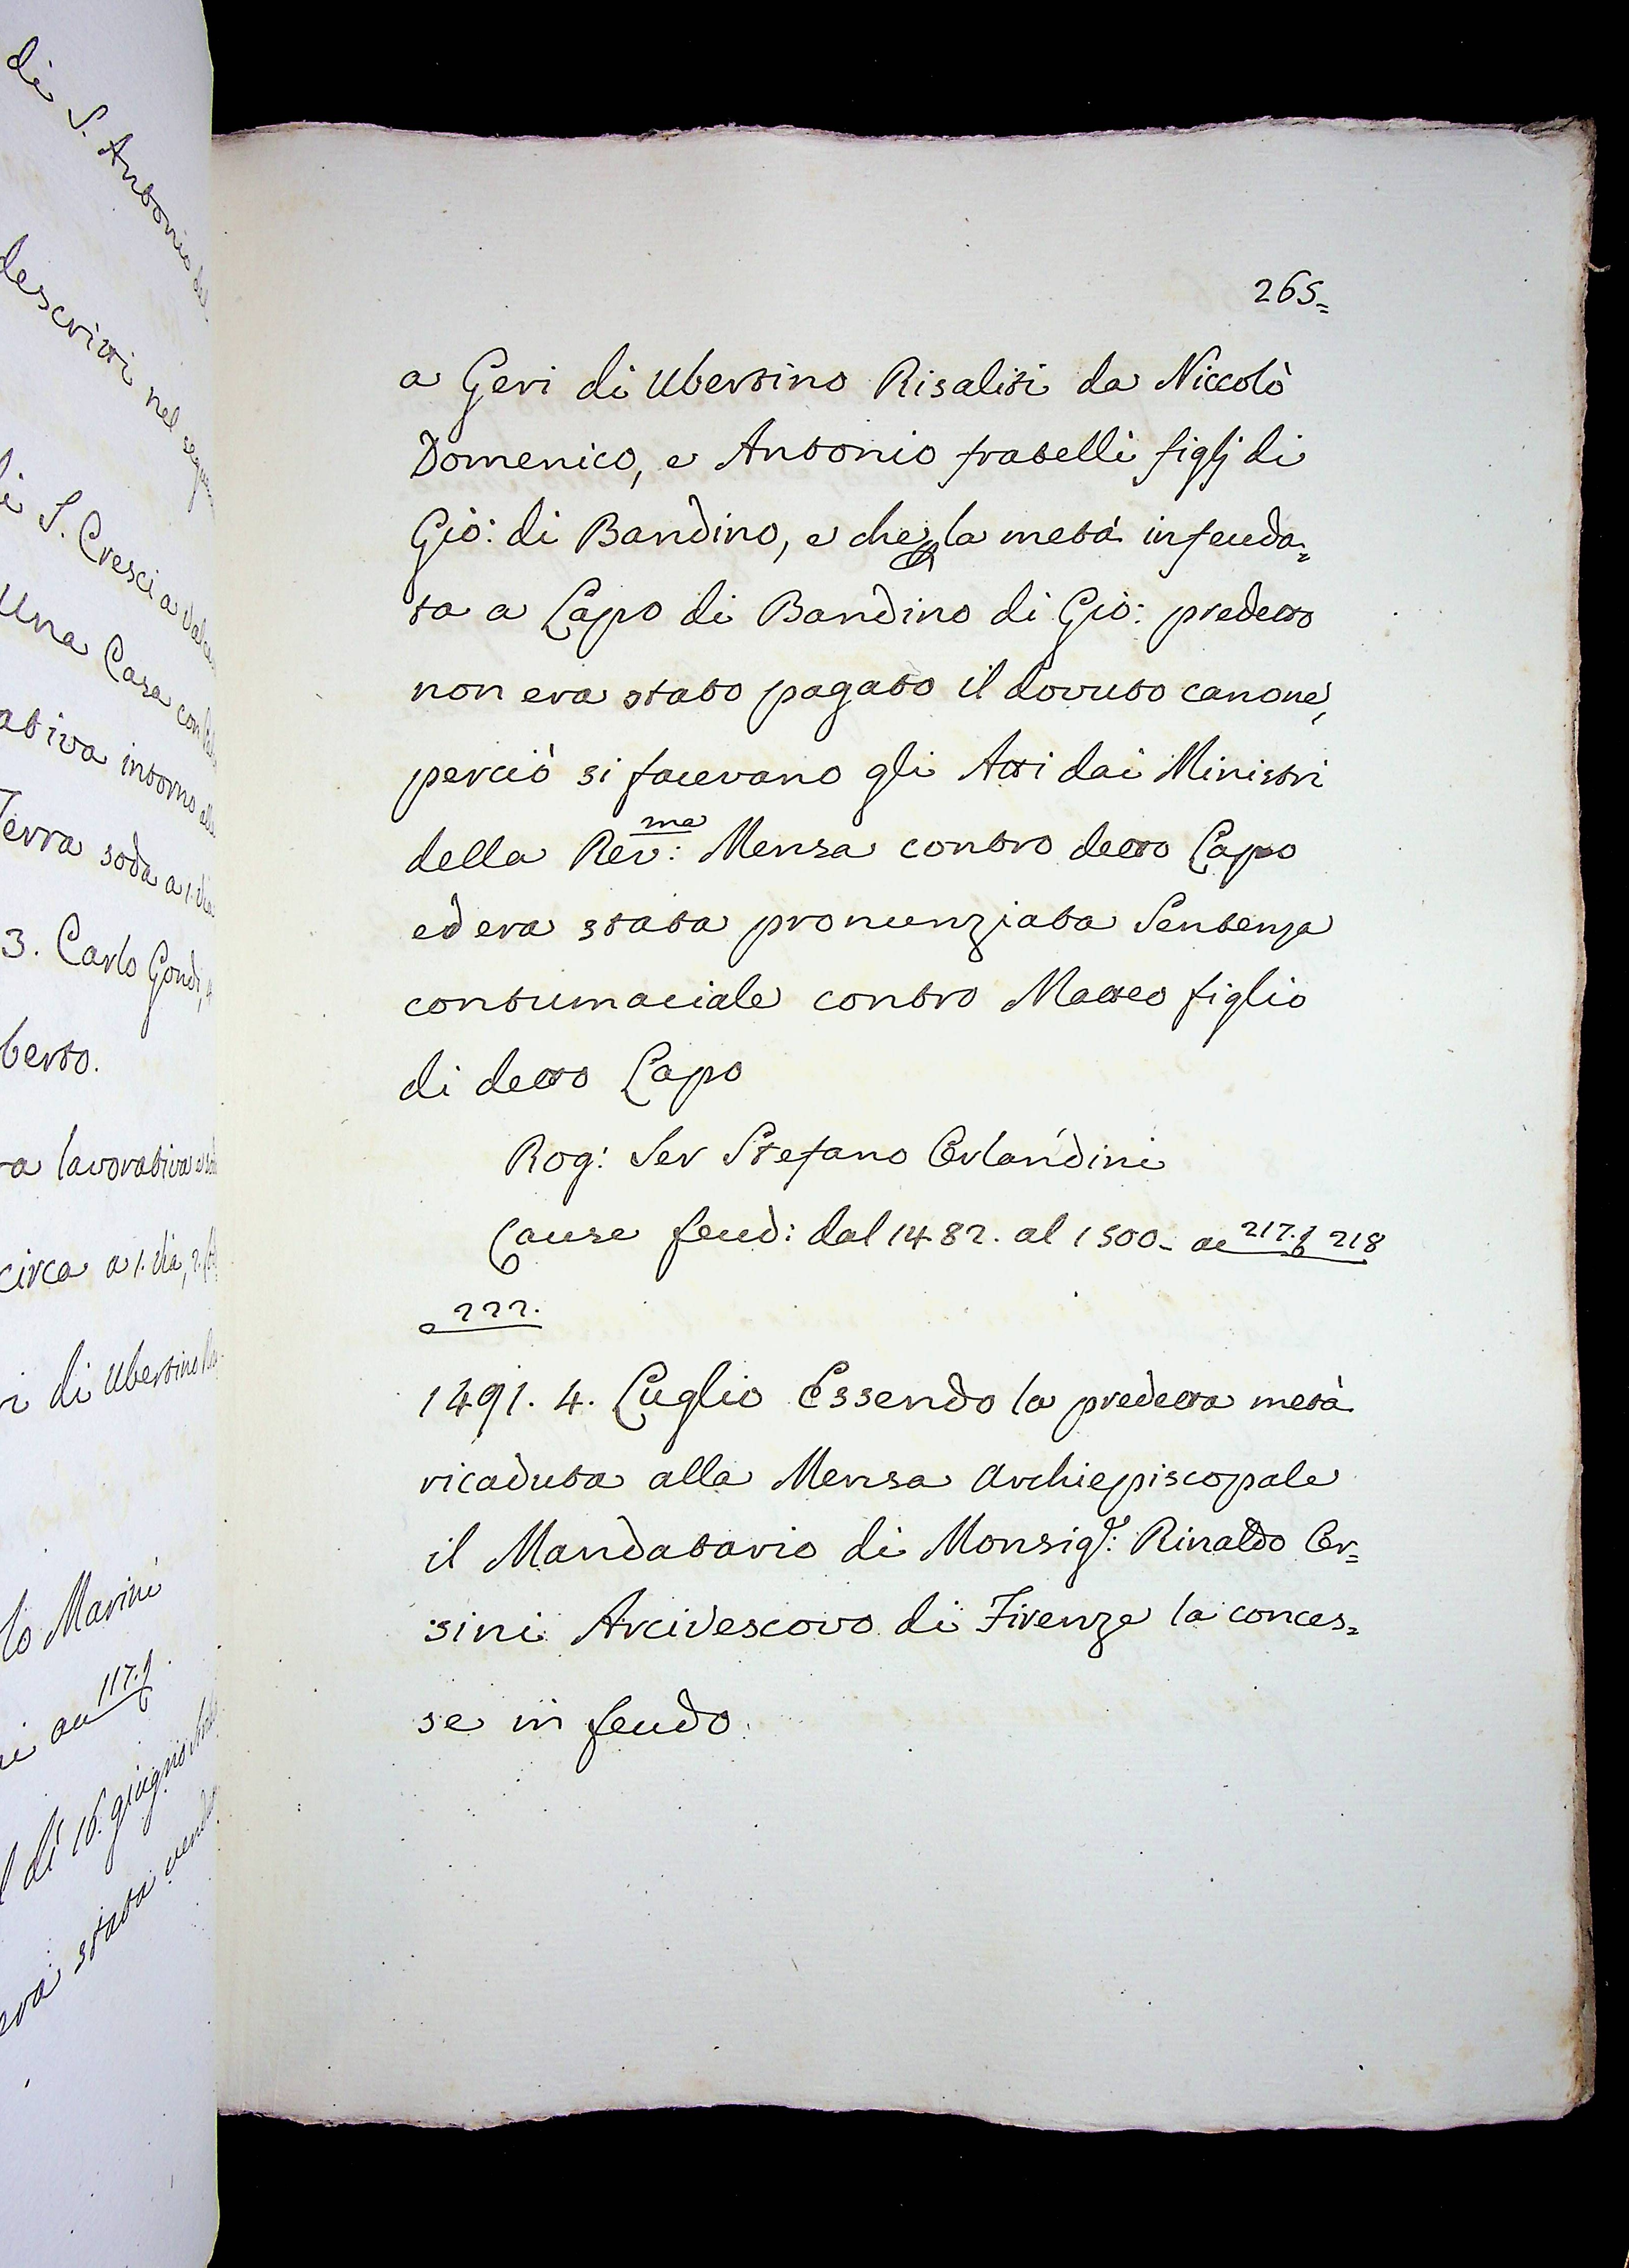 di S. Antonio del
descritti nel
di S. Cresci a
Una Casa con
ativa intorno
Terra soda a 1. Via
3. Carlo Gondi, 4
berto.
ra lavorativa
circa a 1. Via, 2.
ri di Ubertino
lo Marini
117.
l dì 16. giugno
era stata
265=
a Geri di Ubertino Risaliti da Niccolò
Domenico, e Antonio fratelli figlj di
Gio: di Bandino, e che la metà infeuda=
ta a Lapo di Bandino di Gio: predetto
non era stato pagato il dovuto canone,
perciò si facevano gli Atti dai Ministri
della Rev:ma Mensa contro detto Lapo
ed era stata pronunziata Sentenza
contumaciale contro Matteo figlio
di detto Lapo
Rog: Ser Stefano Orlandini
Cause feud: dal 1482. al 1500- ac 217. 218
e 222.
1491. 4. Luglio Essendo la predetta metà
ricaduta alla Mensa Archiepiscopale
il Mandatario di Monsigr: Rinaldo Or=
sini Arcivescovo di Firenze la conces=
se in feudo.